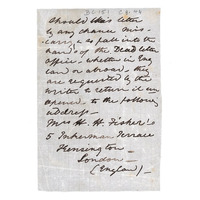 Should this letter
by any chance mis-
carry & so fall into the
hands of the Dead letter
office - whether in Eng
land or abroad, they
are requested by the
writer to return it un
opened to the following
address -
Mrs H. H. Fisher's
5 Inkerman Terrace
Kensington
London -
(England) -